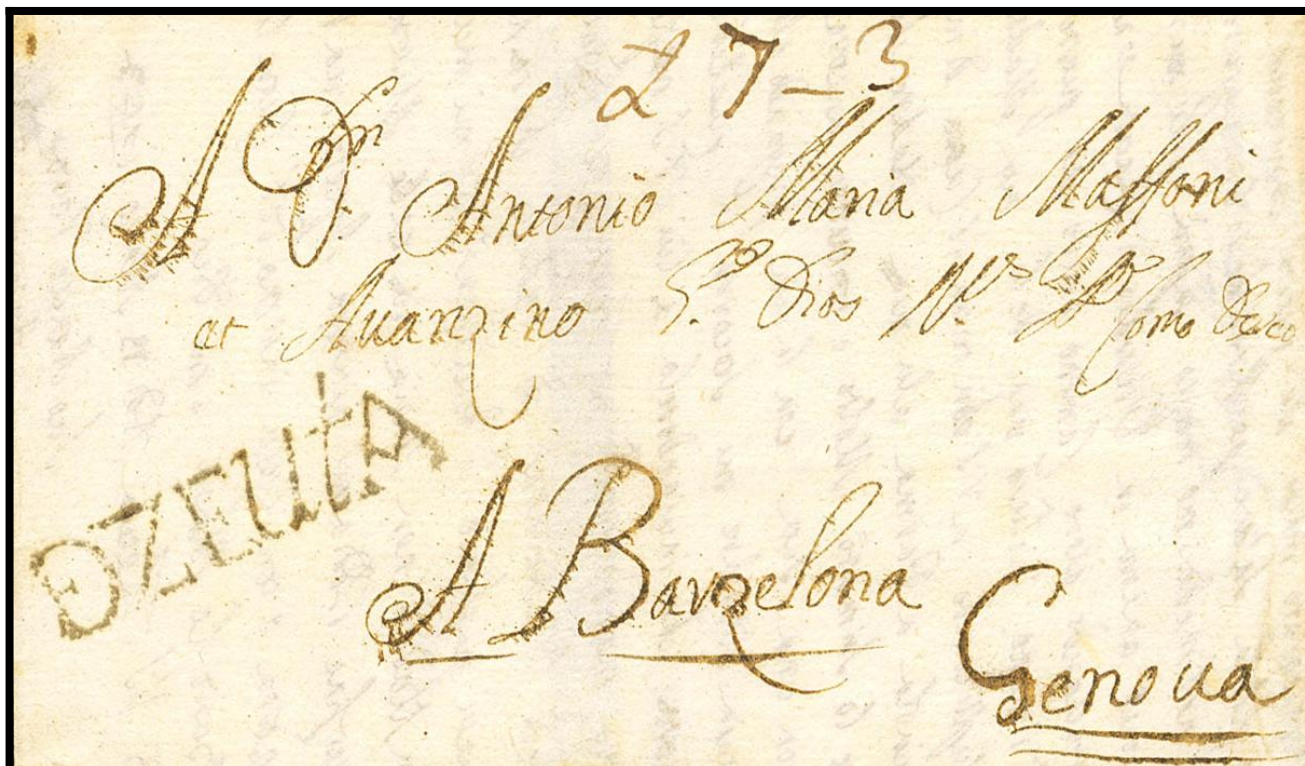 L 7-3
A Dn. Antonio Maria Maffoni
et Auanzino Gde. Dios Ms. As. Como Deseo
DE ZEUTA
A Barzelona
Genoua